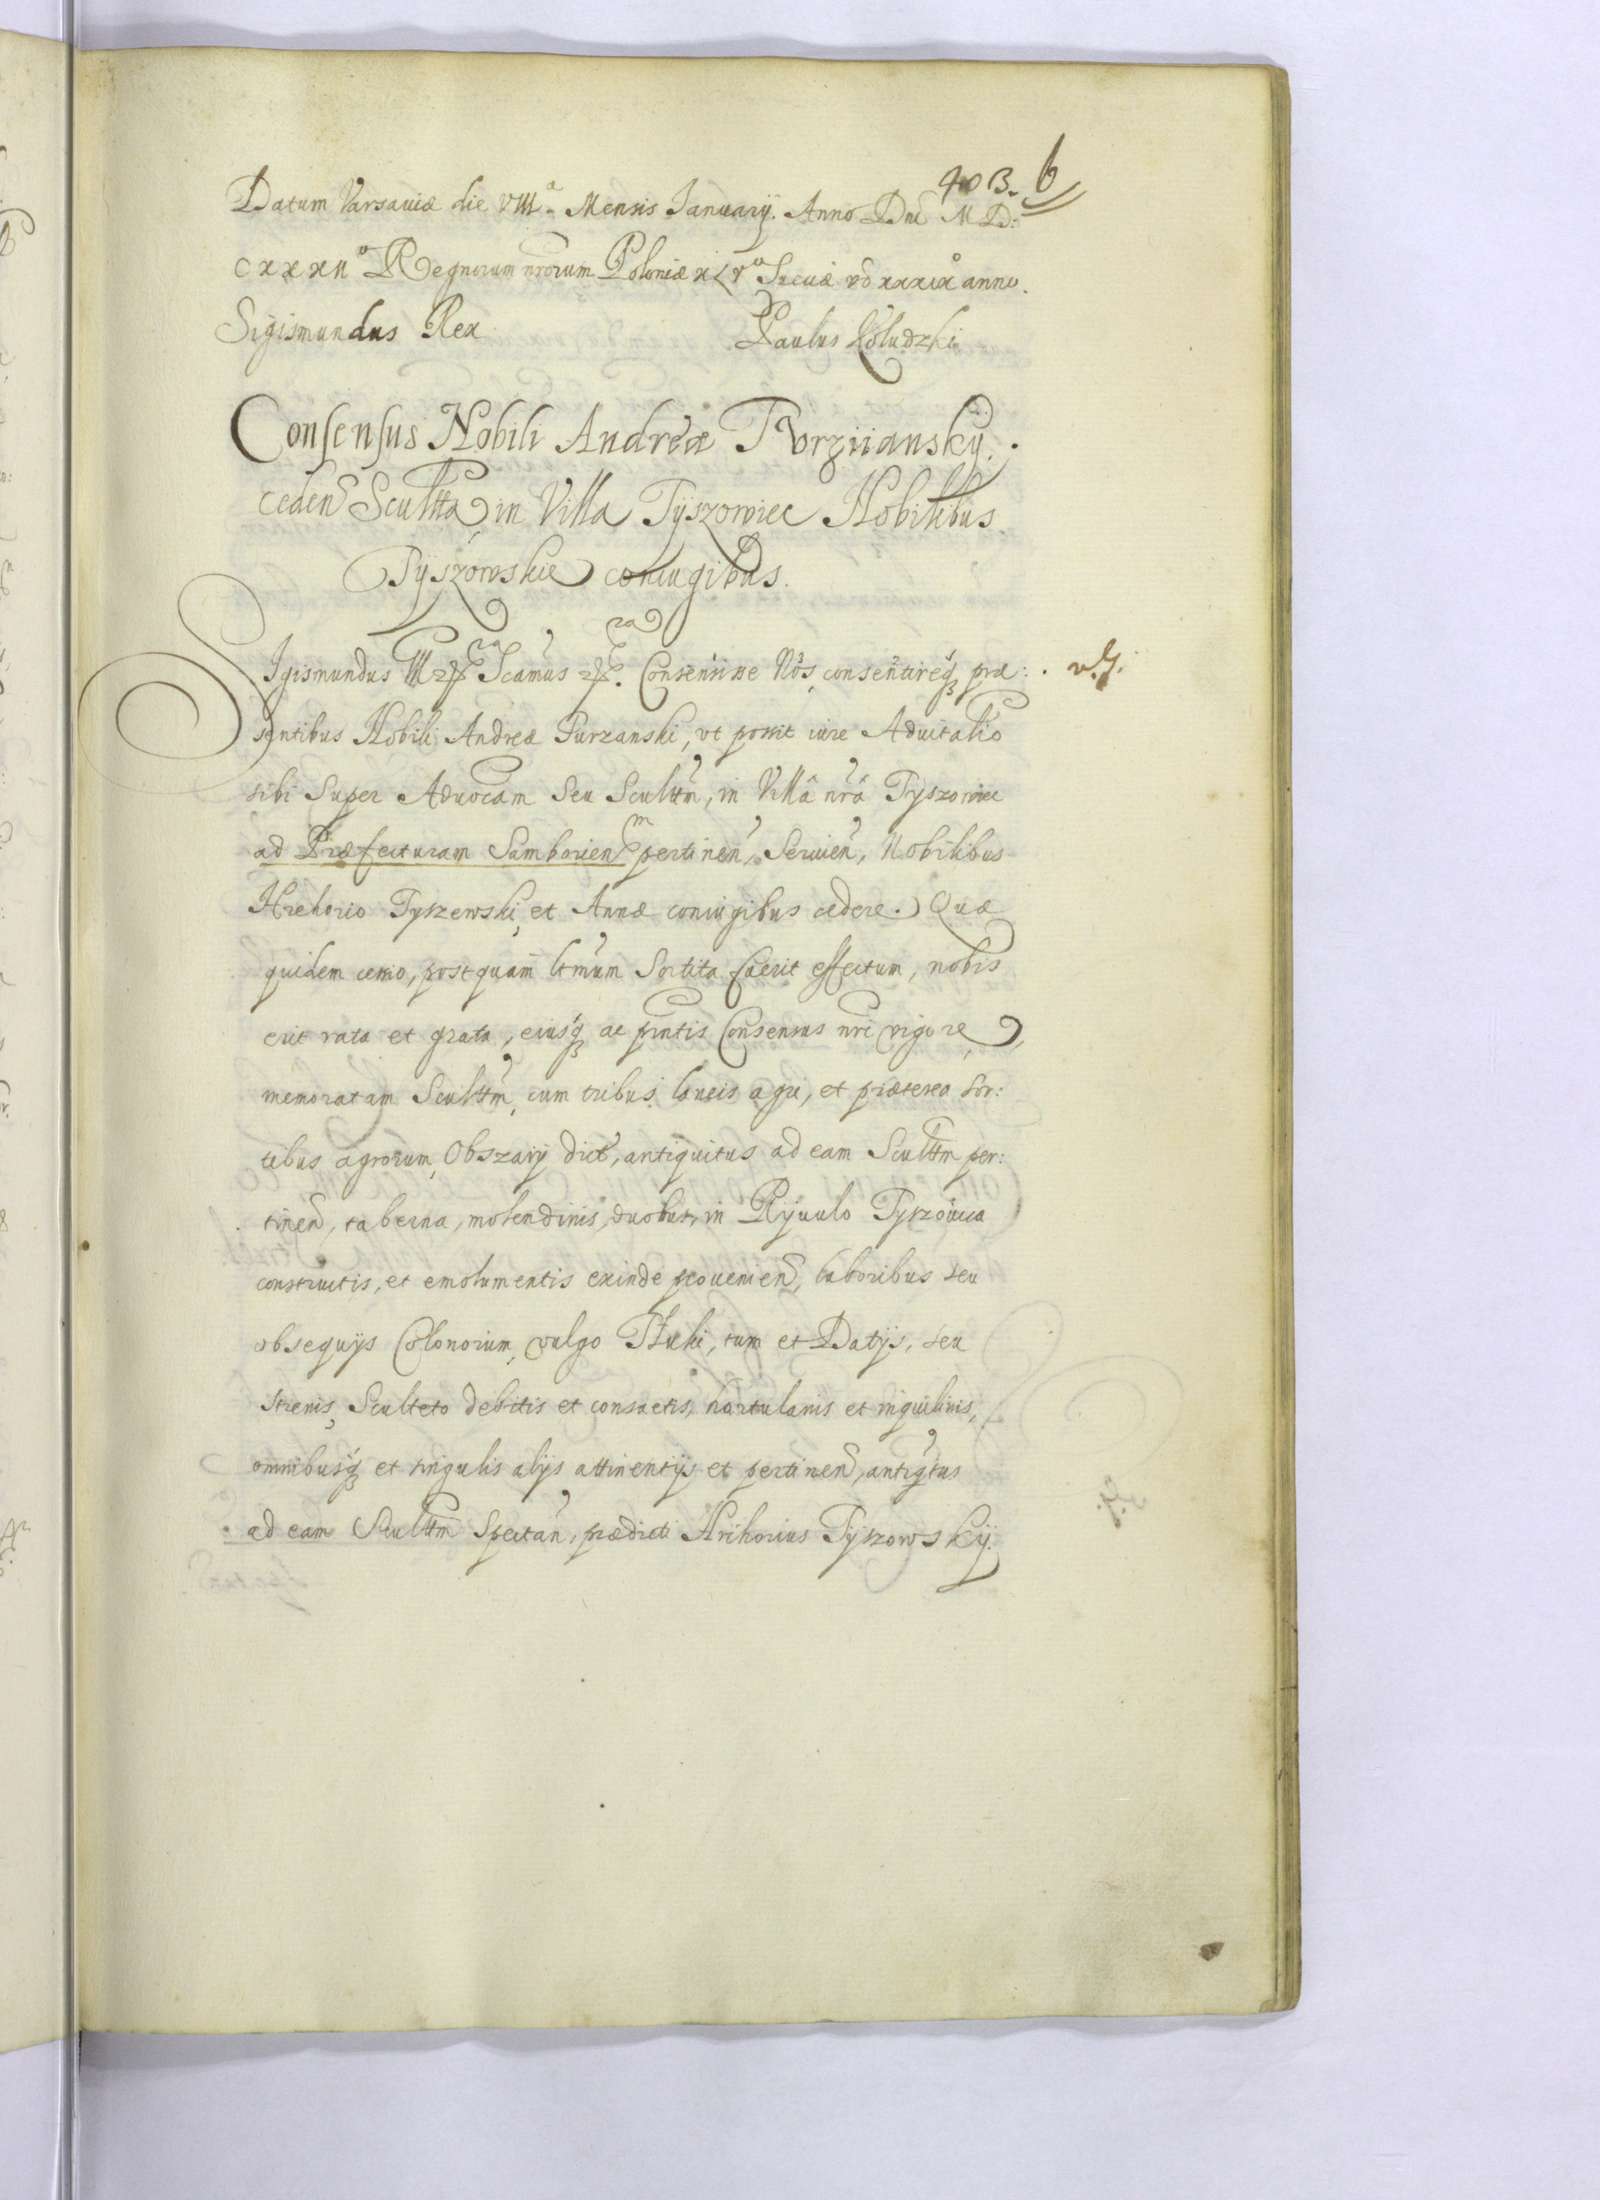 403. 6
Datum Varsaviæ die VIII.a Mensis Januarij. Anno Dnĩ M D:
CXXXII.o Regnorum nrorum Poloniæ XLV.o Sueciæ vo XXXIX anno.
Sigismundus Rex Paulus Kołudzki
Consensus Nobili Andreæ Turziiansky.
ceden Scultta in Villa Tyszowiec Nobilibus
Tyszowskie coniugibus.
Sigismundus III etc. Scamus etc. Consensisse Nos, consentireq præ:
sentibus Nobili Andreæ Turzanski, vt possit iure Aduitalio
sibi super Aduocam seu Scultm, in Villâ nrâ Tyszowiec
ad Præfecturam Samborien pertinen, Seruien, Nobilibus
Hrehorio Tyszewski, et Annæ coniugibus cedere. Quæ
quidem cessio, postquam ltmum sortita fuerit effectum, nobis
erit rata et grata, eiusq ac pntis Consensus nri vigore,
memoratam Scultm, cum tribus laneis agri, et præterea sor:
tibus agrorum, Obszary dict, antiquitus ad eam Scultm per:
tinen, taberna, molendinis, duobus, in Ryuulo Tyszowca
constructis, et emolumentis exinde prouenien, laboribus seu
obsequijs Colonorum, vulgo Tłuki, tum et Datijs, seu
strenis, Sculteto debitis et consuetis, hortulanis et inquilinis,
omnibusq et singulis alijs attinentijs et pertinen, antiqtus
ad eam Scultm spectan, prædicti Hrihorius Tyszowskij.